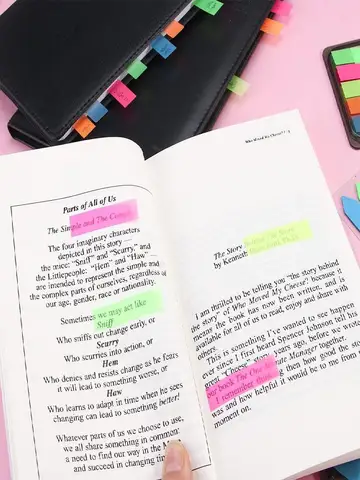 Parts of All of Us
The Simple and The Complex
The four imaginary characters
depicted in this story —
the mice: "Sniff" and "Scurry," and
the Littlepeople: "Hem" and "Haw" —
are intended to represent the simple and
the complex parts of ourselves, regardless of
our age, gender, race or nationality.
Sometimes we may act like
Sniff
Who sniffs out change early, or
Scurry
Who scurries into action, or
Hem
Who denies and resists change as he fears
it will lead to something worse, or
Haw
Who learns to adapt in time when he sees
changing can lead to something better!
Whatever parts of us we choose to use,
we all share something in common:
a need to find our way in the
and succeed in changing
Who Moved My Cheese?
The Story Behind The Story
by Kenneth Blanchard, Ph.D.
I am thrilled to be telling you "the story behind
the story" of Who Moved My Cheese? because it
means the book has now been written, and is
available for all of us to read, enjoy and share with
others.
This is something I've wanted to see happen
ever since I first heard Spencer Johnson tell his
great "Cheese" story, years ago, before we wrote
our book The One Minute Manager together.
I remember thinking then how good the story
was and how helpful it would be to me from that
moment on.